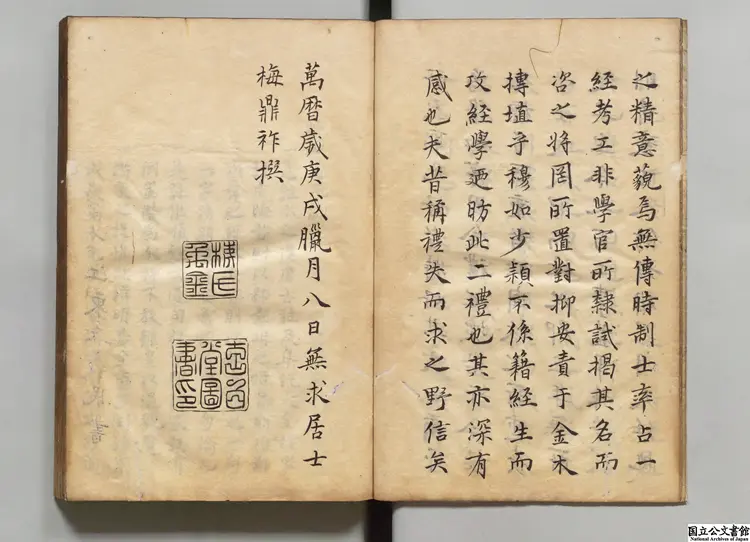 之精意藐焉無傳時制士率占一
經考工非學官所隸試揭其名而
咨之將罔所置對抑安責于金木
摶埴乎穆如少穎不係籍經生而
攻經學廼昉此二禮也其亦深有
感也夫昔稱禮失而求之野信矣
萬曆歲庚戌臘月八日無求居士
梅鼎祚撰
梅氏禹金
堂圖書印
国立公文書館
National Archives of Japan